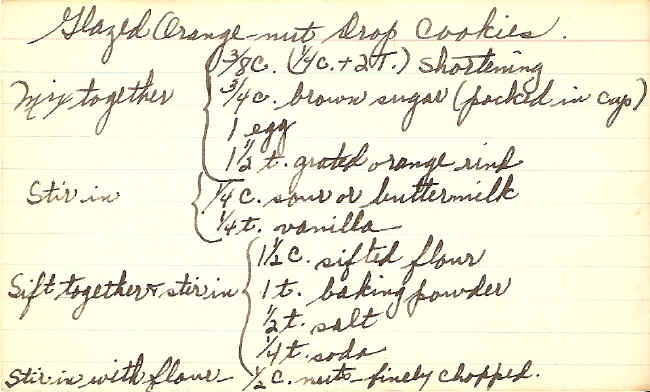 Glazed Orange-nut Drop Cookies.
3/8 c. (1/4 c. + 2 T.) Shortening
Mix together 3/4 c. brown sugar (packed in cup)
1 egg
1 1/2 t. grated orange rind
Stir in 1/4 c. sour or buttermilk
1/4 t. vanilla
1 1/2 c. sifted flour
Sift together & stir in 1 t. baking powder
1/2 t. salt
1/4 t. soda
Stir in with flour - 1/2 c. nuts - finely chopped.